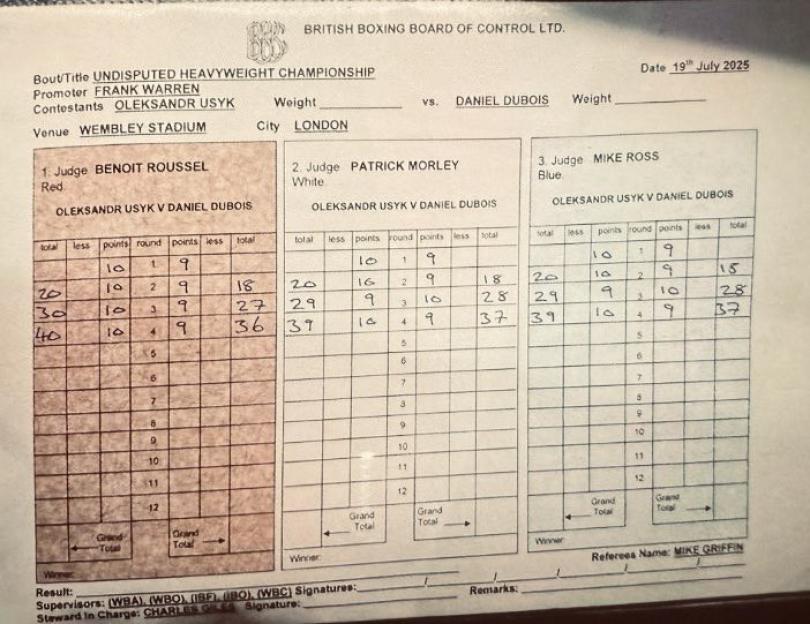 BRITISH BOXING BOARD OF CONTROL LTD.
Bout/Title UNDISPUTED HEAVYWEIGHT CHAMPIONSHIP
Date 19th July 2025
Promoter FRANK WARREN
Contestants OLEKSANDR USYK Weight vs. DANIEL DUBOIS Weight
Venue WEMBLEY STADIUM City LONDON
1. Judge BENOIT ROUSSEL
Red
OLEKSANDR USYK V DANIEL DUBOIS
total less points round points less total
10 1 9
20 10 2 9 18
30 10 3 9 27
40 10 4 9 36
5
6
7
8
9
10
11
12
Grand Total Grand Total
Winner:
2. Judge PATRICK MORLEY
White
OLEKSANDR USYK V DANIEL DUBOIS
total less points round points less total
10 1 9
20 10 2 9 18
29 9 3 10 28
39 10 4 9 37
5
6
7
8
9
10
11
12
Grand Total Grand Total
Winner:
3. Judge MIKE ROSS
Blue
OLEKSANDR USYK V DANIEL DUBOIS
total less points round points less total
10 1 9
20 10 2 9 18
29 9 3 10 28
39 10 4 9 37
5
6
7
8
9
10
11
12
Grand Total Grand Total
Winner:
Referees Name: MIKE GRIFFIN
Result:
Supervisors: (WBA), (WBO), (IBF), (IBO), (WBC) Signatures: Remarks:
Steward In Charge: CHARLES GILES Signature: